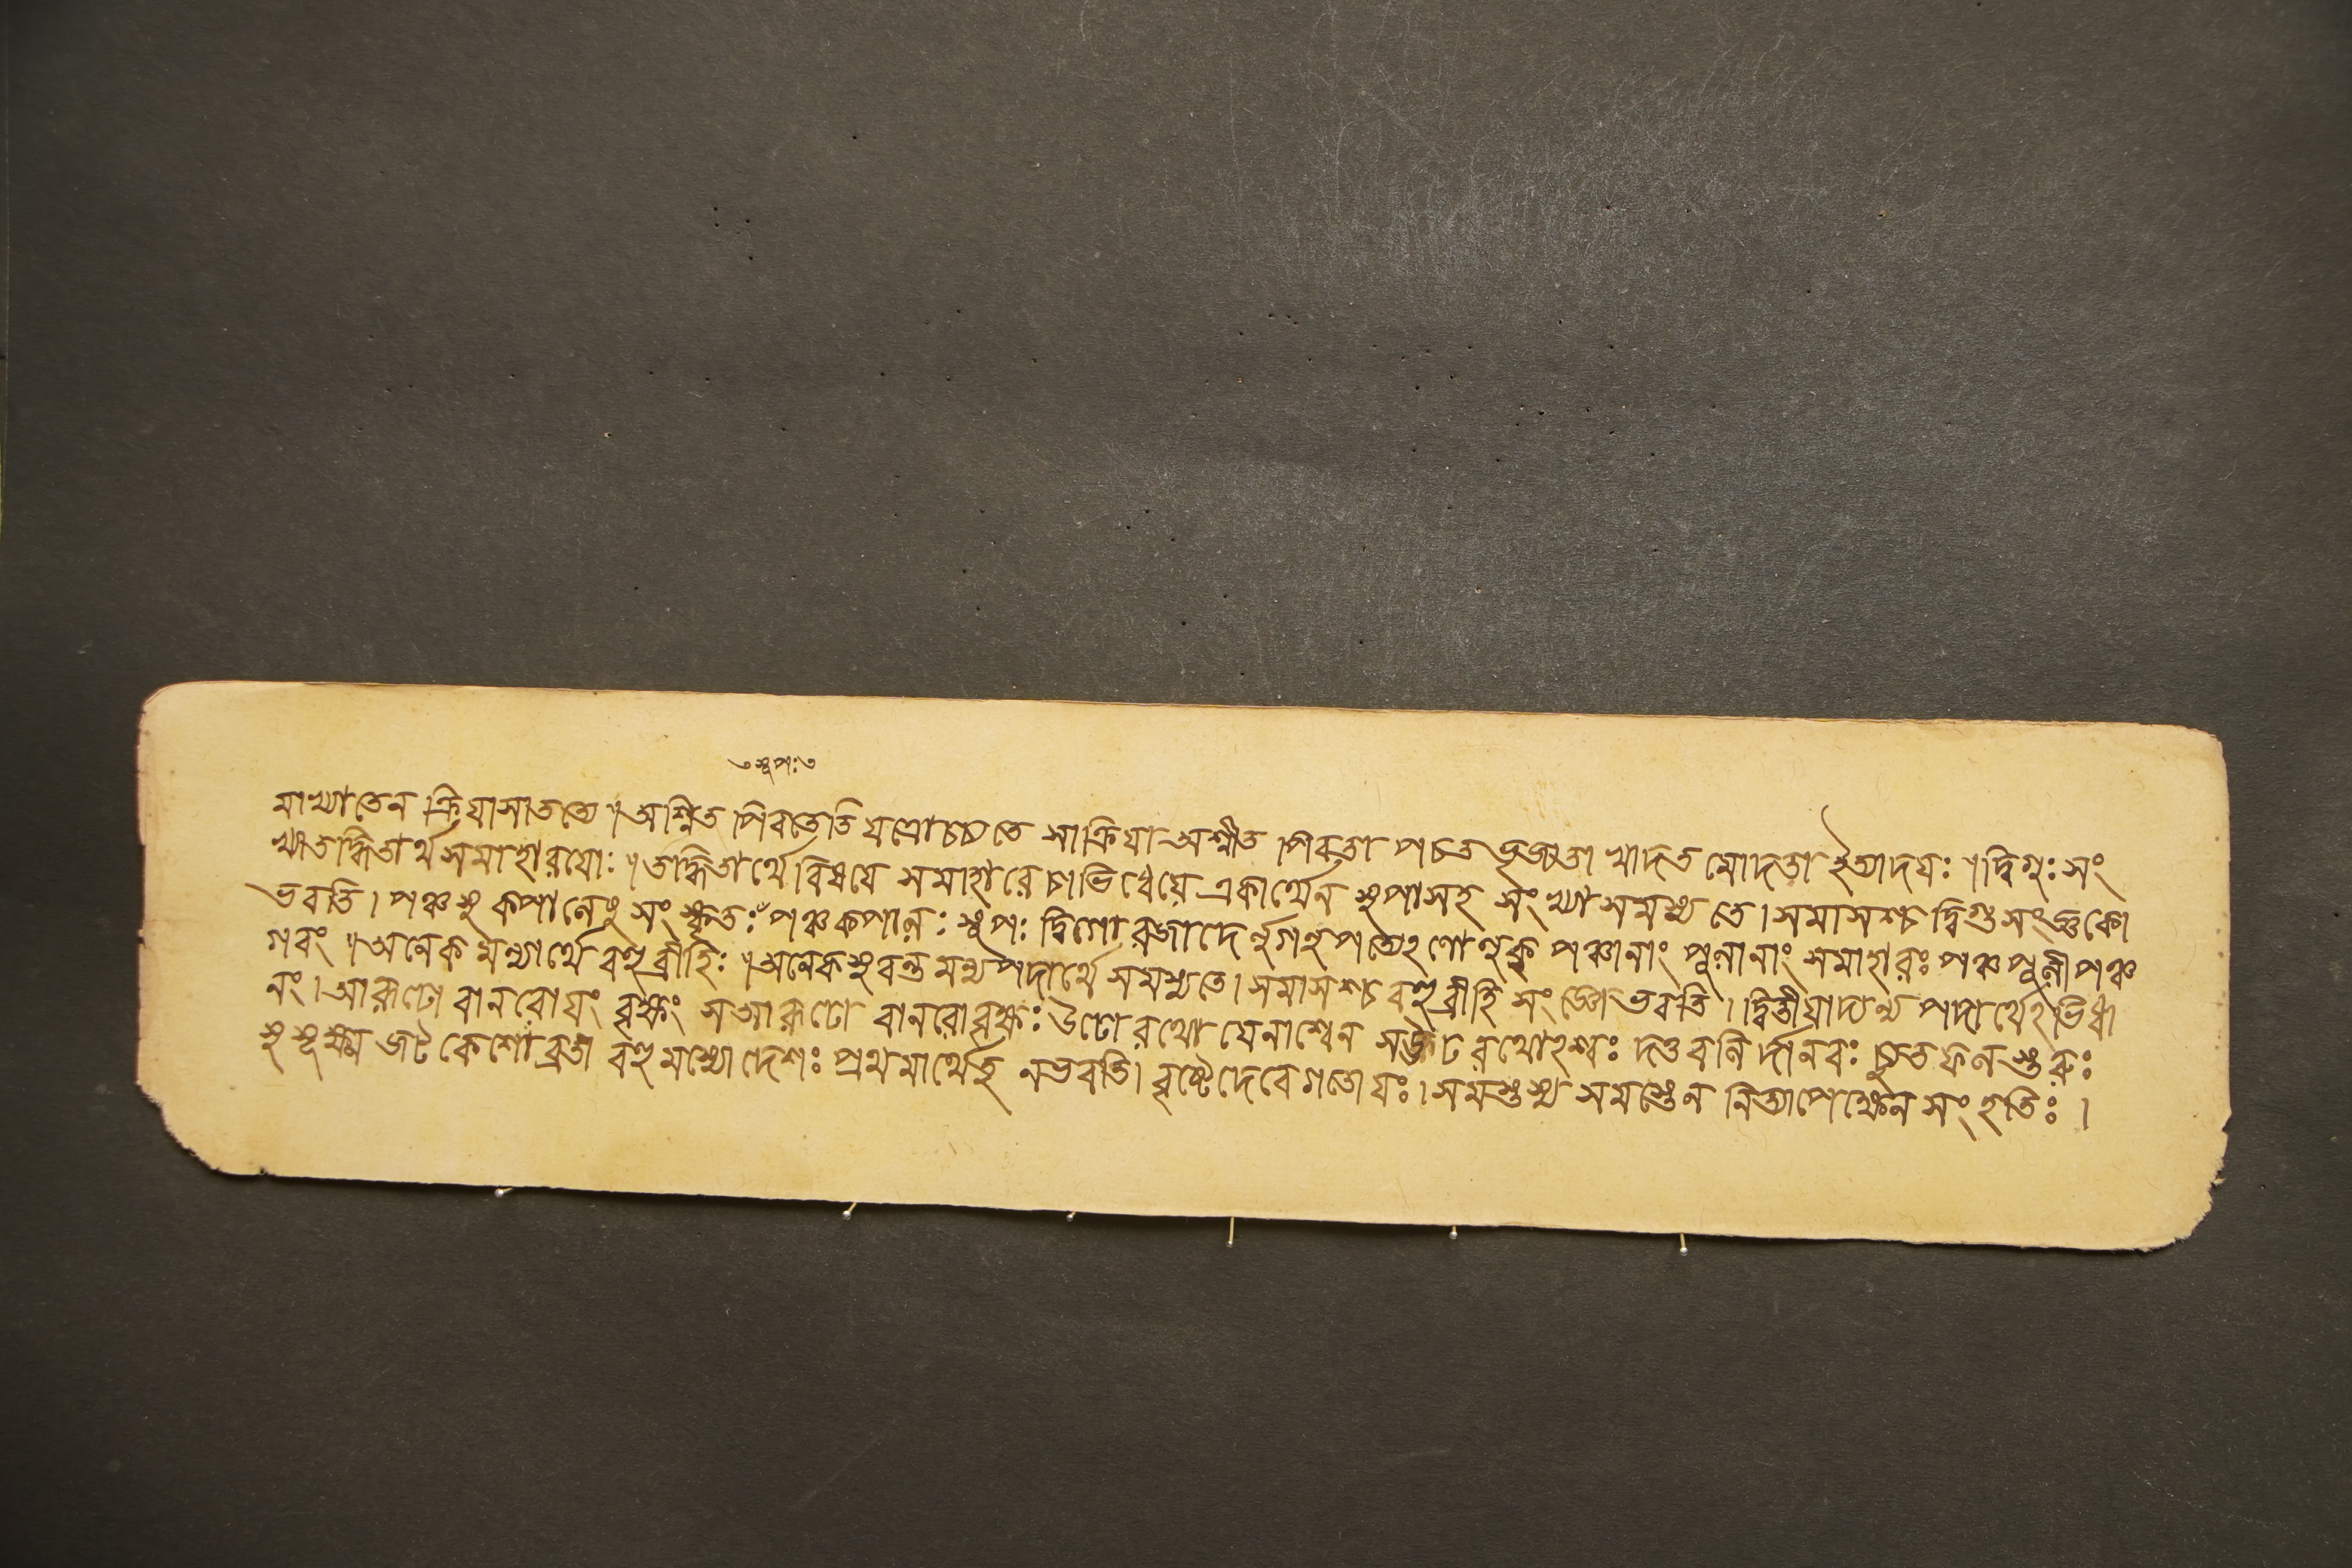 সুপঃ
মাখ্যাতেন ক্রিযাসাতত্যে ॥ অশ্নিত পিবতেতি যত্রোচ্যতে সাক্রিযা অশ্নীত পিবতা পচত ভৃজ্জতা খাদত মোদতা ইত্যাদযঃ ॥ দ্বিগুঃ সং
খ্যাতদ্ধিতার্থসমাহারযোঃ ॥ তদ্ধিতার্থে বিষযে সমাহারে চাভিধেয়ে একার্থেন সুপাসহ সংখ্যা সমস্যতে । সমাসশ্চ দ্বিগু সংজ্ঞকো
ভবতি । পঞ্চসু কপালেষু সংস্কৃতঃ পঞ্চকপালঃ সুপঃ দ্বিগোরজাদের্লুগলুপত্যেঽণোলুক্ পঞ্চানাং পুলানাং সমাহারঃ পঞ্চপুলী পঞ্চ
গবং ॥ অনেকমন্যার্থে বহুব্রীহিঃ ॥ অনেকসুবন্তমন্যপদার্থে সমস্যতে । সমাসশ্চ বহুব্রীহি সংজ্ঞো ভবতি । দ্বিতীয়াদ্যন্য পদার্থেঽভিধা
নং । আরূঢো বানরোযং বৃক্ষং সআরূঢো বানরোবৃক্ষঃ উঢো রথো যেনাশ্বেন সঊঢরথোঽশ্বঃ দত্তবলির্দানবঃ চ্যুতফলস্তরুঃ
সুসূক্ষ্মজটকেশো ব্রতী বহুমৎস্যো দেশঃ প্রথমার্থেতু নভবতি । বৃষ্টেদেবেগতোযঃ । সমস্তস্য সমস্তেন নিত্যাপেক্ষেন সংহতিঃ ।